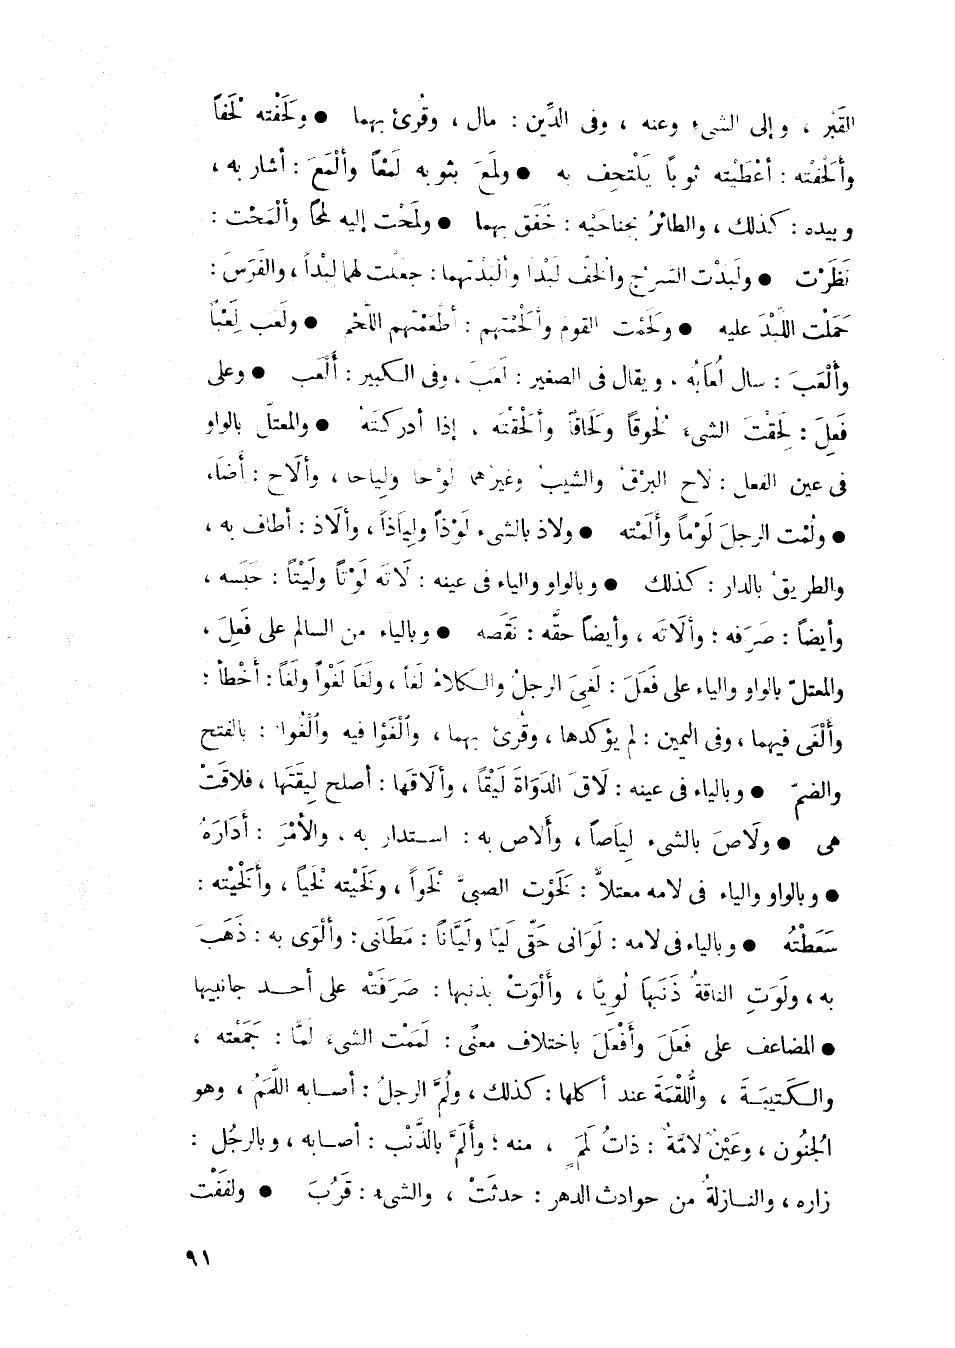 القَبْر ، وإلى الشىء وعنه ، وفى الدِّين : مال ، وقُرئ بهما ● ولَحَفْته لَحْفاً
وأَلْحَفْته : أعْطَيْته ثوباً يَلْتحِف به ● ولمَعَ بثوبه لَمْعاً وألْمَعَ : أشار به ،
وبيده : كذلك ، والطائرُ بجناحَيْه : خَفَق بهما ● ولَمَحْت إليه لمحًا وألْمَحْت :
نَظَرْت ● ولَبدْت السَرْج والخُفّ لَبْدًا وألبدْتهما : جعلت لهما لبْداً ، والفَرَسَ :
حَمَلْت اللِّبْدَ عليه ● ولَحَمْت القومَ وألحَمْتهم : أطْعَمْتهم اللّحْم ● ولَعَب لَعْباً
وأَلْعَبَ : سال لُعَابُه . ويقال فى الصغير : لَعَبَ ، وفى الكبير : أَلْعَب ● وعلى
فَعِلَ : لَحِقْتَ الشىءَ لُحُوقاً ولَحَاقاً وألحَقْتَه ، إذا أدركتَهُ ● والمعتلّ بالواو
فى عين الفعل : لاح البرْقُ والشيبُ وغيرُهما لَوْحاً ولِياحا ، وألَاح : أضَاء
● ولُمْت الرجلَ لَوْماً وأَلَمْته ● ولاذ بالشىء لَوْذاً ولِيَاذاً ، وألَاذ : أطاف به ،
والطريقُ بالدار : كذلك ● وبالواو والياء فى عينه : لَاتَه لَوْتاً ولَيْتاً : حَبَسه ،
وأيضاً : صَرَفه ؛ وأَلَاتَه ، وأيضاً حقَّه : نَقَصه ● وبالياء من السالم على فَعِلَ ،
والمعتلّ بالواو والياء على فَعَلَ : لَغِىَ الرجلُ والكلامُ لَغاً ، ولَغَا لَغْواً ولَغاً : أخْطأ ؛
وأَلْغَى فيهما ، وفى اليمين : لم يؤكدها ، وقُرئ بهما ، وٱلْغَوْا فيه وٱلْغُوا : بالفتح
والضمّ ● وبالياء فى عينه : لَاقَ الدَوَاةَ لَيْقاً ، وألَاقَها : أصلح لِيقَتَها ، فلاقَتْ
هى ● ولَاصَ بالشىء لِيَاصاً ، وأَلاص به : استدار به ، والأمْرَ : أَدَارَهُ
● وبالواو والياء فى لامه معتلاًّ : لَخَوْت الصبىَّ لَخْواً ، ولَخَيْته لَخْياً ، وأَلْخَيْته :
سَعَطْتُه ● وبالياء فى لامه : لَوَانى حَقّى لَيًّا ولَيَّاناً : مَطَلَنى ؛ وألْوَى به : ذَهَبَ
به ، ولَوَتِ الناقةُ ذَنَبَها لَوِيًّا ، وأَلْوَتْ بذنبها : صَرَفَتْه على أحد جانبيها
● المضاعف على فَعَلَ وأَفْعَلَ باختلاف معنًى : لَمَمْت الشىءَ لَمًّا : جَمَعْته ،
والكَتيبَةَ ، واللُّقْمَةَ عند أكلها : كذلك ، ولُمَّ الرجلُ : أصابه اللَّمَمُ ، وهو
الجُنُون ، وعَيْنٌ لامَّةٌ : ذاتُ لَمَمٍ ، منه ؛ وأَلَمَّ بالذَّنْب : أصابه ، وبالرجُل :
زاره ، والنازلةُ من حوادث الدهر : حدثَتْ ، والشىءُ : قَرُبَ ● ولفَفْت
٩١